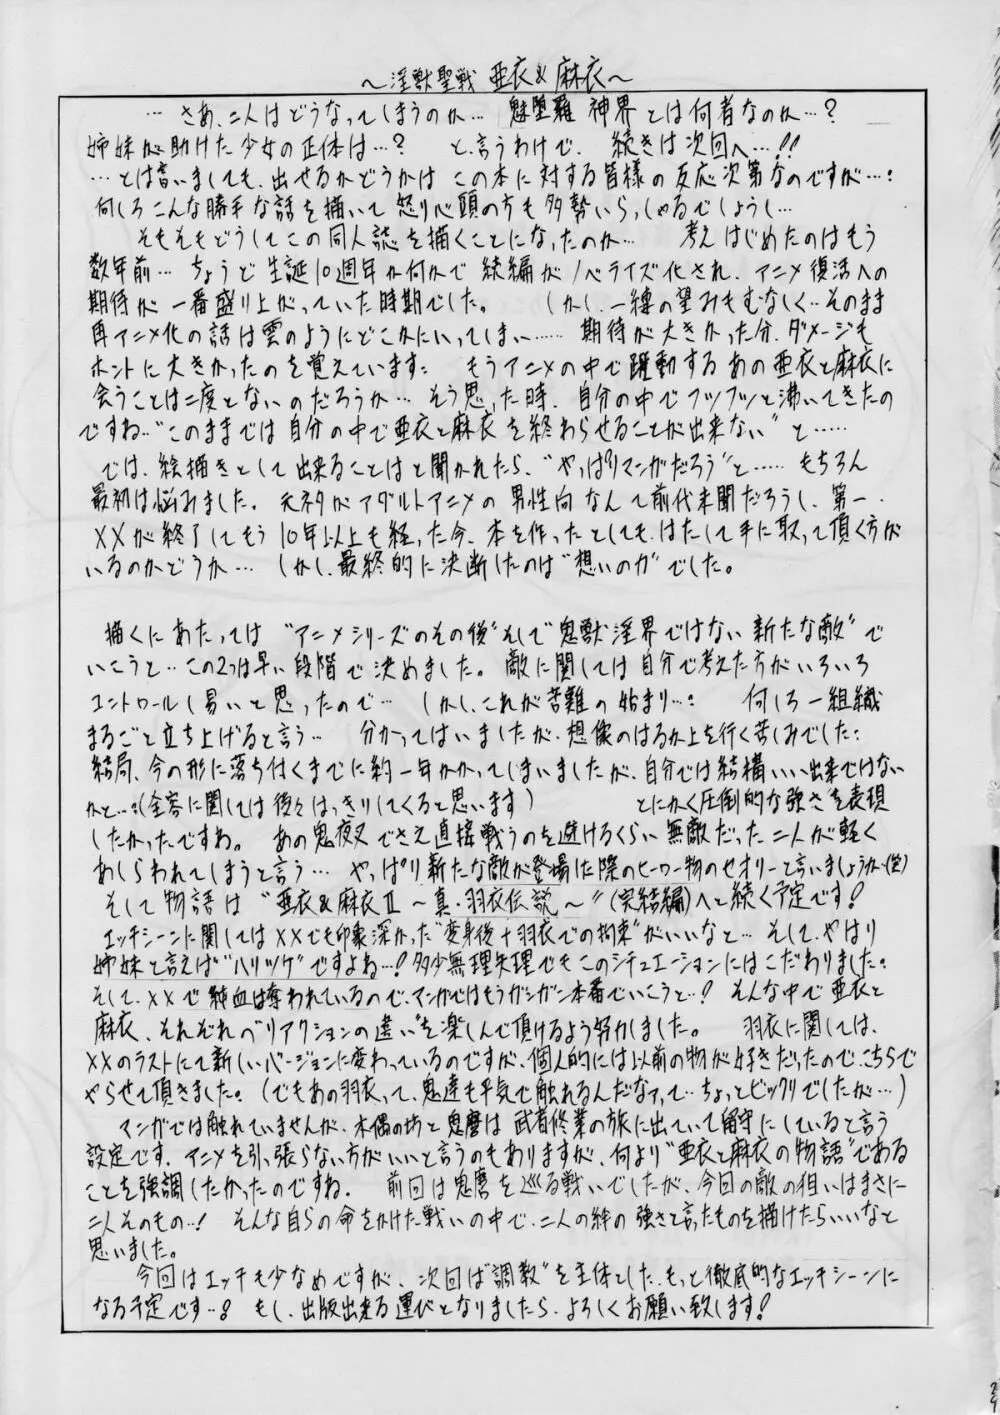 ～淫獣聖戦 亜衣&麻衣～
…さあ、二人はどうなってしまうのか… 魅堕羅 神界とは何者なのか…?
姉妹が助けた少女の正体は…? と、言うわけで、続きは次回へ…!!
…とは言いましても、出せるかどうかは この本に対する皆様の反応次第なのですが…:
何しろこんな勝手な話を描いて 怒り心頭の方も多勢いらっしゃるでしょうし…
そもそもどうしてこの同人誌を描くことになったのか… 考えはじめたのはもう
数年前… ちょうど生誕10週年か何かで 続編がノベライズ化され、アニメ復活への
期待が一番盛り上がっていた時期でした。 しかし、一縷の望みもむなしく…そのまま
再アニメ化の話は雲のようにどこかにいってしまい…… 期待が大きかった分、ダメージも
ホントに大きかったのを覚えています: もうアニメの中で躍動する あの亜衣と麻衣に
会うことは二度とないのだろうか… そう思った時、自分の中でフツフツと沸いてきたの
ですね…"このままでは自分の中で亜衣と麻衣を終わらせることが出来ない"と……
では、絵描きとして出来ることはと聞かれたら、"やっぱりマンガだろう"と…… もちろん
最初は悩みました。元ネタがアダルトアニメの男性向なんて前代未聞だろうし、第一、
XXが終了してもう10年以上も経った今、本を作ったとしても、はたして手に取って頂く方が
いるのかどうか… しかし、最終的に決断したのは"想いの力"でした。
描くにあたっては "アニメシリーズのその後" そして"鬼獣淫界ではない新たな敵"で
いこうと…この2つは早い段階で決めました。敵に関しては自分で考えた方がいろいろ
コントロールし易いと思ったので… しかし、これが苦難の始まり…: 何しろ一組織
まるごと立ち上げると言う… 分かってはいましたが、想像のはるか上を行く苦しみでした:
結局、今の形に落ち付くまでに約一年かかってしまいましたが、自分では結構いい出来ではない
かと…:(全容に関しては後々はっきりしてくると思います) とにかく圧倒的な強さを表現
したかったですね。 あの鬼夜叉でさえ直接戦うのを避けるくらい無敵だった二人が軽く
あしらわれてしまうと言う… やっぱり新たな敵が登場した際のヒーロー物のセオリーと言いましょうか(笑)
そして物語は "亜衣&麻衣Ⅱ ～真・羽衣伝説～"(完結編)へと続く予定です!
エッチシーンに関してはXXでも印象深かった"変身後+羽衣での拘束"がいいなと… そして、やはり
姉妹と言えば"ハリツケ"ですよね…! 多少無理矢理でもこのシチュエーションにはこだわりました:
そして、XXで純血は奪われているので、マンガではもうガンガン本番でいこうと…! そんな中で亜衣と
麻衣、それぞれ"リアクションの違い"を楽しんで頂けるよう努力しました。 羽衣に関しては、
XXのラストにて新しいバージョンに変わっているのですが、個人的には以前の物が好きだったのでこちらで
やらせて頂きました。(でもあの羽衣って、鬼達も平気で触れるんだなァって…ちょっとビックリでしたが…)
マンガでは触れていませんが、木偶の坊と鬼麿は 武者修業の旅に出ていて留守にしていると言う
設定です。アニメを引っ張らない方がいいと言うのもありますが、何より"亜衣と麻衣の物語"である
ことを強調したかったのですね。 前回は鬼麿を巡る戦いでしたが、今回の敵の狙いはまさに
二人そのもの…! そんな自らの命をかけた戦いの中で、二人の絆の強さと言ったものを描けたらいいなと
思いました。
今回はエッチも少なめですが、次回は"調教"を主体とした、もっと徹底的なエッチシーンに
なる予定です…! もし、出版出来る運びとなりましたら、よろしくお願い致します!
24